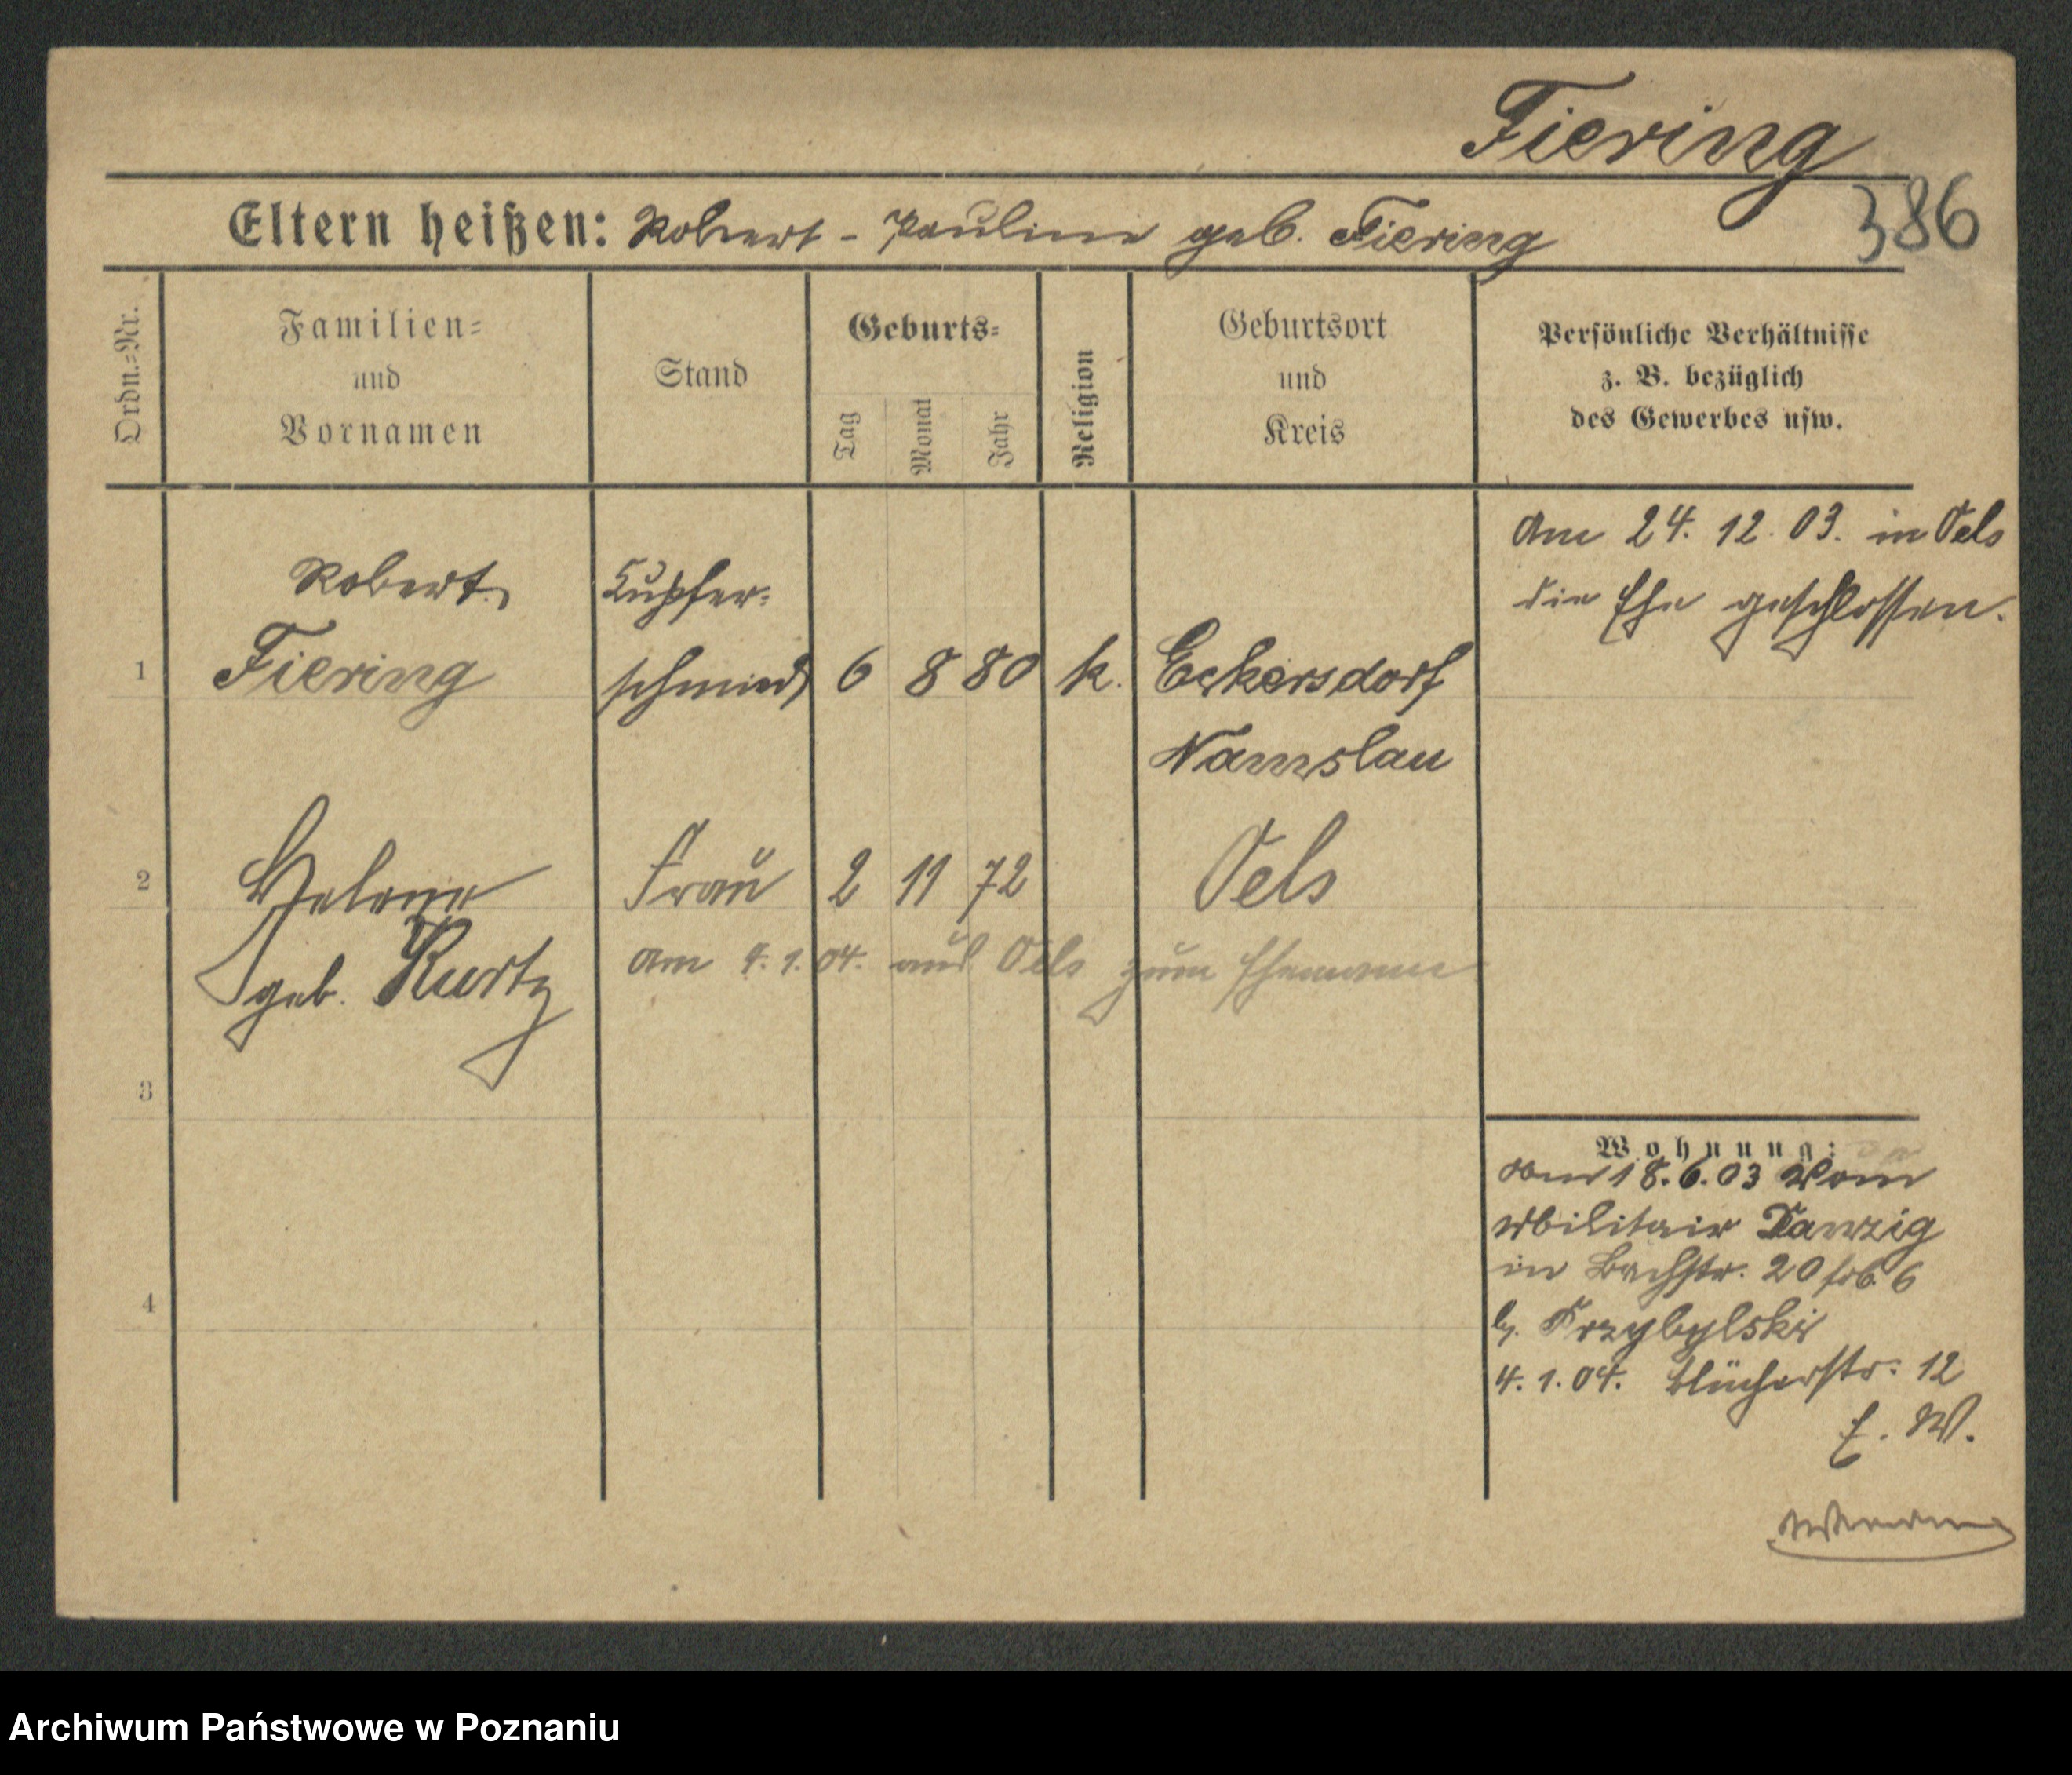 Fiering
386
Eltern heißen: Robert - Pauline geb. Fiering
Ordn.=Nr.
Familien=
und
Vornamen
Stand
Geburts=
Tag
Monat
Jahr
Religion
Geburtsort
und
Kreis
Persönliche Verhältnisse
z. B. bezüglich
des Gewerbes usw.
Am 24. 12. 03. in Oels
die Ehe geschlossen.
Robert Kupfer=
1 Fiering schmied 6 8 80 k. Eckersdorf
Namslau
2 Helene Frau 2 11 72 Oels
geb. Kurtz am 4. 1. 04. aus Oels zum Ehemann
3
4
Wohnung:
Am 18. 6. 03 vom
Militair Danzig
in Bachstr. 20 6
b. Przybylski
4. 1. 04. Blücherstr. 12
E. W.
Archiwum Państwowe w Poznaniu